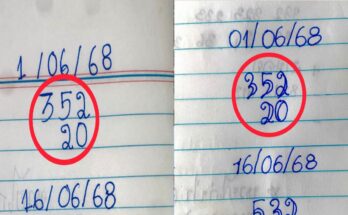 1/06/68
352
20
16/06/68
01/06/68
352
20
16/06/68
532